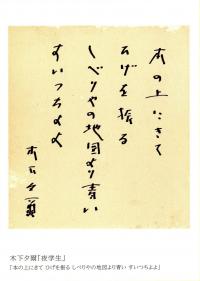 本の上にきて
ひげを振る
しべりやの地図より青い
すいつちよよ
木下夕爾
木下夕爾「夜学生」
「本の上にきて ひげを振る しべりやの地図より青い すいつちよよ」